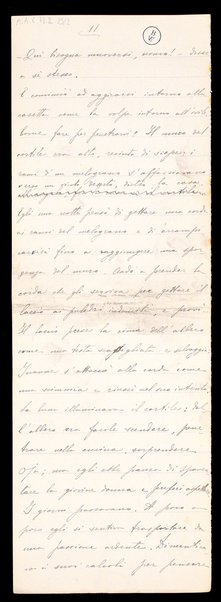 11
- Qui bisogna muoversi, nonna! - disse
a sè stesso.
E cominciò ad aggirarsi intorno alla
casetta come la volpe intorno all'ovile.
Come fare per penetrarvi? Il muro del
cortile era alto, recinto di siepe; i
rami d'un melograno s'affacciavano
Egli una notte pensò di gettare una corda
ai rami del melograno e di arrampi
carvisi fino a raggiungere una spor
genza del muro. Andò a prendere la
corda che gli serviva per gettare il
laccio ai puledri indomiti e provò.
Il laccio prese la cima dell'albero
come una testa scapigliata e selvaggia;
s'attaccò alla corda come
una scimmia e riuscì nel suo intento.
La luna illuminava il cortile; dal
l'albero era facile scendere, pene
trare nella cucina, sorprendere
ma egli ebbe paura di spaven
tare la giovine donna e preferì aspettare.
I giorni passavano. A poco a
poco egli si sentiva trasportare da
una passione ardente. Dimentica
va i suoi calcoli per pensare